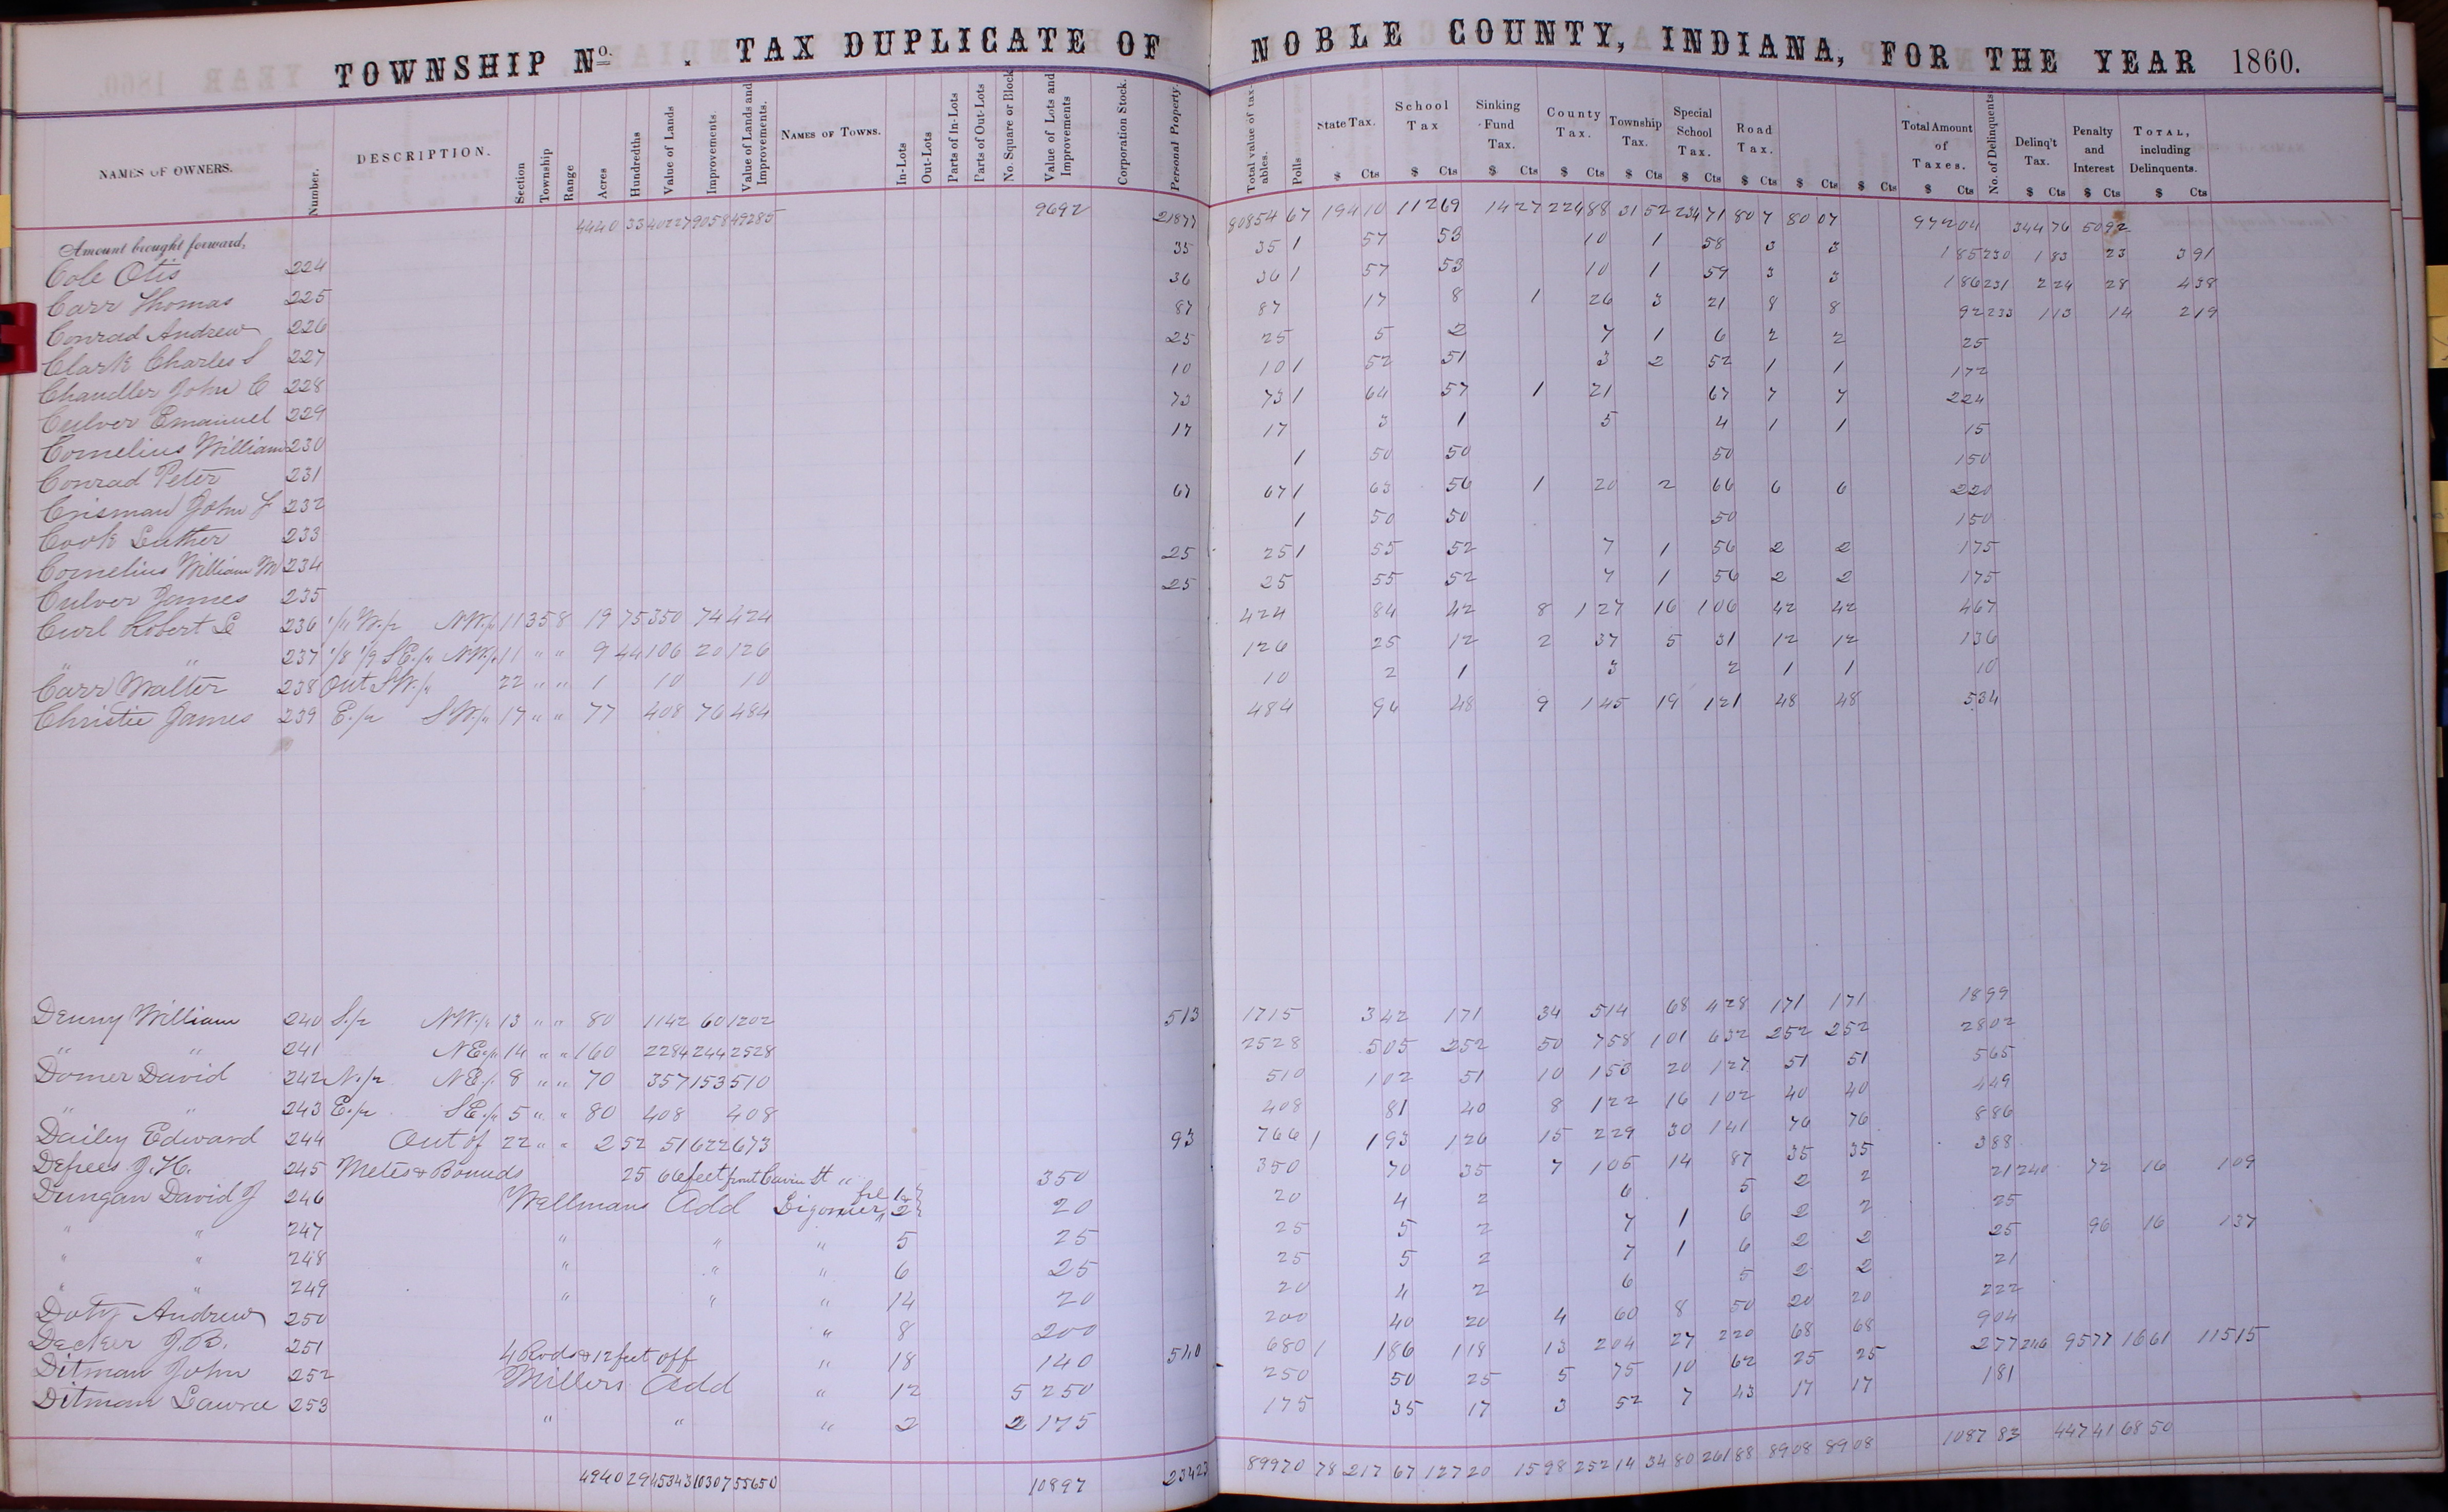 TOWNSHIP No. . TAX DUPLICATE OF NOBLE COUNTY, INDIANA, FOR THE YEAR 1860.
NAMES OF OWNERS. Number. DESCRIPTION. Section Township Range Acres Hundredths Value of Lands Improvements. Value of Lands and Improvements. NAMES OF TOWNS. In-Lots Out-Lots Parts of In-Lots Parts of Out-Lots No. Square or Block Value of Lots and Improvements Corporation Stock. Personal Property. Total value of taxables. Polls State Tax. School Tax Sinking Fund Tax. County Tax. Township Tax. Special School Tax. Road Tax. Total Amount of Taxes. No. of Delinquents Delinq't Tax. Penalty and Interest TOTAL, including Delinquents.
$ Cts $ Cts $ Cts $ Cts $ Cts $ Cts $ Cts $ Cts $ Cts $ Cts $ Cts $ Cts $ Cts
Amount brought forward, 4440 33 40227 9058 49285 9692 21877 80854 67 194 10 112 69 14 27 224 88 31 52 234 71 80 7 80 07 972 04 344 76 50 92
Cole Otis 224 35 35 1 57 53 10 1 58 3 3 1 85 230 1 83 23 3 91
Carr Thomas 225 36 36 1 57 53 10 1 59 3 3 1 86 231 2 24 28 4 38
Conrad Andrew 226 87 87 17 8 1 26 3 21 8 8 92 233 1 13 14 2 19
Clark Charles S 227 25 25 5 2 7 1 6 2 2 25
Chandler John C 228 10 10 1 52 51 3 2 52 1 1 1 72
Culver Emanuel 229 73 73 1 64 57 1 21 67 7 7 2 24
Cornelius William 230 17 17 3 1 5 4 1 1 15
Conrad Peter 231 1 50 50 50 1 50
Crisman John F 232 67 67 1 63 56 1 20 2 66 6 6 2 20
Cook Luther 233 1 50 50 50 1 50
Cornelius William M 234 25 25 1 55 52 7 1 56 2 2 1 75
Culver James 235 25 25 55 52 7 1 56 2 2 1 75
Curl Robert L 236 1/4 W./2 NW./4 11 35 8 19 75 350 74 424 424 84 42 8 1 27 16 1 06 42 42 4 67
" " 237 1/8 1/9 SE./4 NW./4 11 " " 9 44 106 20 126 126 25 12 2 37 5 31 12 12 1 36
Carr Walter 238 Out SW./4 22 " " 1 10 10 10 2 1 3 2 1 1 10
Christie James 239 E./2 SW./4 17 " " 77 408 76 484 484 96 48 9 1 45 19 1 21 48 48 5 34
Denny William 240 S./2 NW./4 13 " " 80 1142 60 1202 513 1715 3 42 1 71 34 5 14 68 4 28 1 71 1 71 18 99
" " 241 NE./4 14 " " 160 2284 244 2528 2528 5 05 2 52 50 7 58 1 01 6 32 2 52 2 52 28 02
Domer David 242 N./2 NE./4 8 " " 70 357 153 510 510 1 02 51 10 1 53 20 1 27 51 51 5 65
" " 243 E./2 SE./4 5 " " 80 408 408 408 81 40 8 1 22 16 1 02 40 40 4 49
Dailey Edward 244 Out of 22 " " 2 52 51 622 673 93 766 1 1 93 1 26 15 2 29 30 1 41 76 76 8 86
Defrees J. H. 245 Metes & Bounds 25 66 feet front Cavin St " 350 350 70 35 7 1 05 14 87 35 35 3 88
Dungan David J 246 Wellmans Add Ligonier 1 2 20 20 4 2 6 5 2 2 21 240 72 16 1 09
" " 247 " " " 5 25 25 5 2 7 1 6 2 2 25
" " 248 " " " 6 25 25 5 2 7 1 6 2 2 25 96 16 1 37
" " 249 " " " 14 20 20 4 2 6 5 2 2 21
Doty Andrew 250 " 8 200 200 40 20 4 60 8 50 20 20 2 22
Decker J. B. 251 4 Rods & 12 feet off " 18 140 540 680 1 1 86 1 18 13 2 04 27 2 20 68 68 9 04
Ditman John 252 Millers Add " 12 5 250 250 50 25 5 75 10 62 25 25 2 77 246 95 77 16 61 115 15
Ditman Lawrce 253 " " " 2 2 175 175 35 17 3 52 7 43 17 17 1 81
4940 29 45343 10307 55650 10897 23423 89970 78 217 67 127 20 15 98 252 14 34 80 261 88 89 08 89 08 1087 83 447 41 68 50